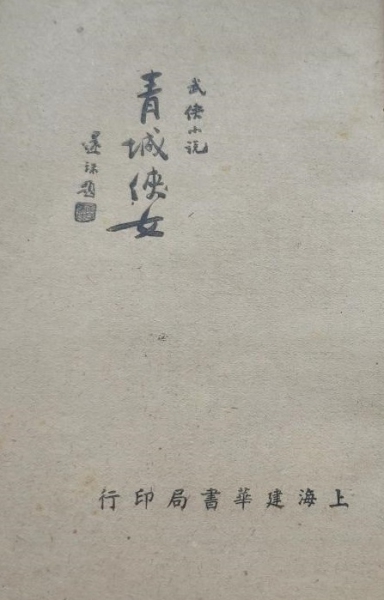 武俠小说
青城俠女
題
上海建華書局印行